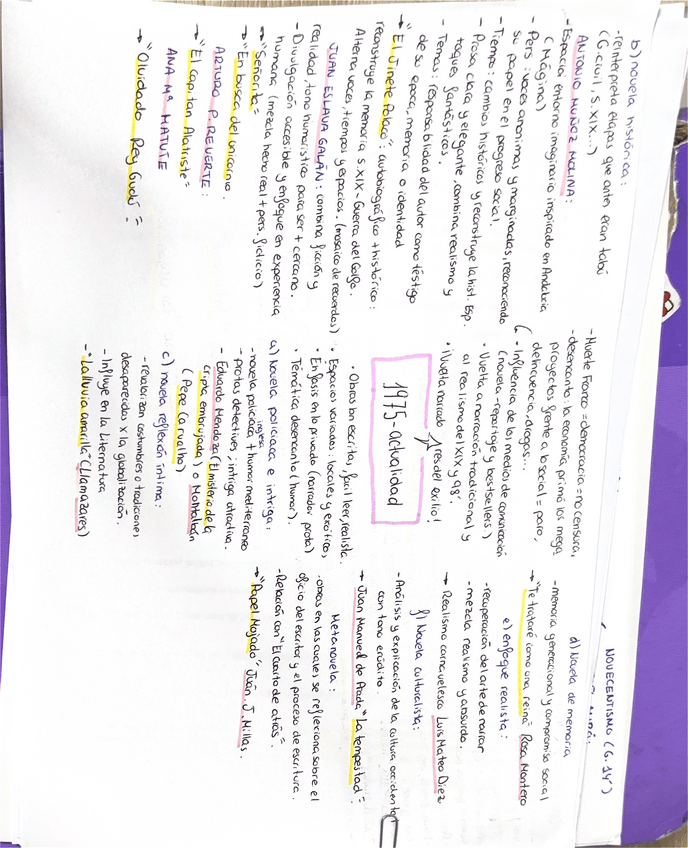 NOVECENTISMO (G. 14)
b) novela histórica:
-reinterpreta etapas que antes eran tabú
(G. civil, s. XIX...)
ANTONIO MUÑOZ MOLINA:
- Espacio: entorno imaginario inspirado en Andalucía
(Mágina)
- Pers: voces anónimas y marginadas, reconociendo
su papel en el progreso social.
- Tiempo: cambios históricos y reconstruye la hist. Esp.
- Prosa clara y elegante, combina realismo y
toques fantásticos.
- Temas: responsabilidad del autor como testigo
de su época, memoria e identidad
→ "El Jinete Polaco": autobiográfico + histórico:
reconstruye la memoria s. XIX - Guerra del Golfo.
Alterna voces, tiempos y espacios. (mosaico de recuerdos)
JUAN ESLAVA GALÁN: combina ficción y
realidad, tono humorístico para ser + cercano.
- Divulgación accesible y enfoque en experiencia
humana (mezcla hecho real + pers. ficticio)
→ "Señorita"
→ "En busca del unicornio.
ARTURO P. REVERTE:
→ "El capitan Alatriste"
ANA Mª MATUTE
→ "Olvidado Rey Gudú"
- Muerte Franco = democracia = no censura,
- desencanto: la economía primó los mega
proyectos frente a lo social = paro,
delincuencia, drogas...
• Influencia de los medios de comunicación
(novela-reportaje y bestsellers)
• Vuelta a narración tradicional y
al realismo del XIX y 98'.
• ¡Vuelta narrado res del exilio!
1975-actualidad
• Obras bn escritas, facil leer, realista.
• Espacios variados: locales y exóticos,
• Enfasis en lo privado (narrador prota)
• Temática desencanto (humor).
a) novela policiaca e intriga:
-novela policiaca inglesa + humor mediterraneo
- protas detectives, intriga atractiva.
- Eduardo Mendoza (El misterio de la
cripta embrujada) o Montalbán
(Pepe Carvalho)
c) novela reflexión íntima:
- revalorizan costumbres o tradiciones
desaparecidos x la globalización.
- Influye en la literatura
- "La lluvia amarilla" (Llamazares)
d) Novela de memoria
- memoria generacional y compromiso social
→ "Te trataré como una reina Rosa Montero
e) enfoque realista:
- recuperación del arte de narrar
- mezcla realismo y absurdo.
→ Realismo carnavalesco Luis Mateo Díez
f) Novela culturalista:
- Análisis y explicación de la cultura occidental
con tono erúdito.
→ Juan Manuel de Prada "La tempestad"
Metanovela:
· obras en las cuales se reflexiona sobre el
oficio del escritor y el proceso de escritura.
- Relación con "El cuarto de atrás"
→ "Papel Mojado" Juan J. Millás.